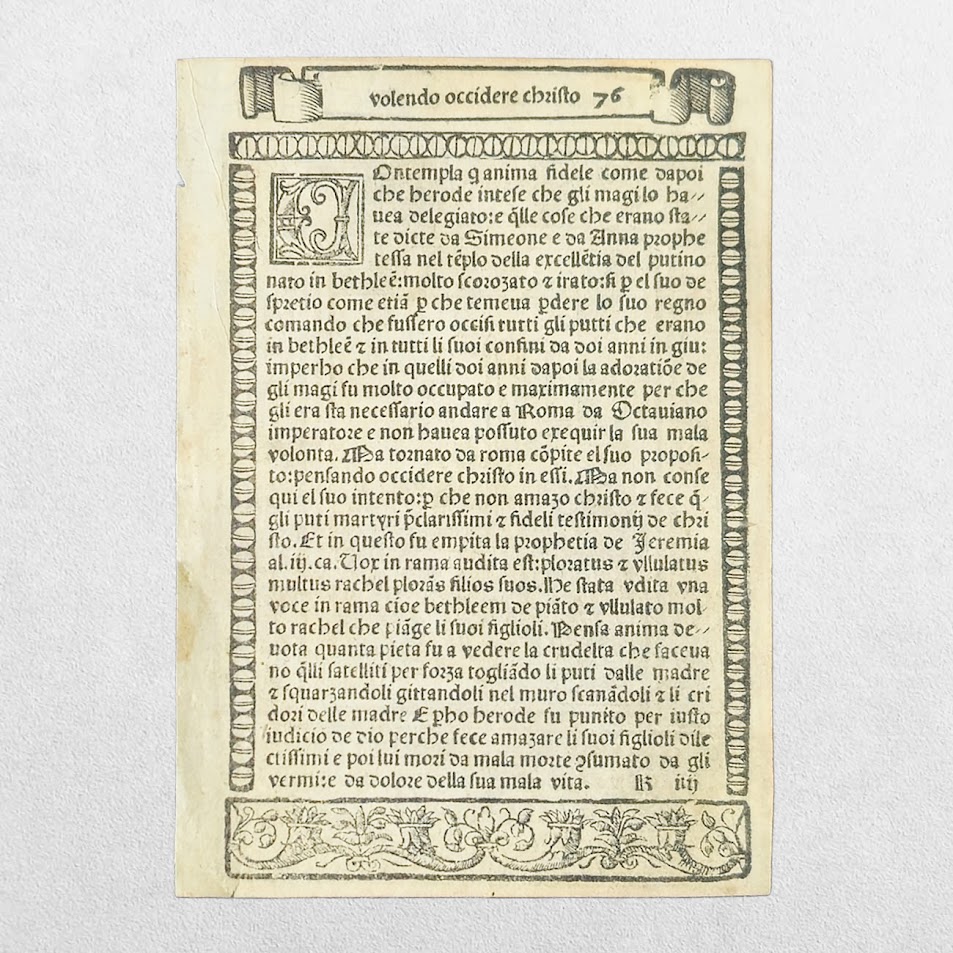 volendo occidere christo 76
COntempla q̃ anima fidele come dapoi
che herode intese che gli magi lo ha//
uea delegiato:e q̃lle cose che erano sta//
te dicte da Simeone e da Anna prophe
tessa nel tẽplo della excellẽtia del putino
nato in bethleẽ:molto scorozato ⁊ irato:si ꝑ el suo de
spretio come etiã ꝑ che temeua ꝑdere lo suo regno
comando che fussero occisi tutti gli putti che erano
in bethleẽ ⁊ in tutti li suoi confini da doi anni in giu:
imperho che in quelli doi anni dapoi la adoratiõe de
gli magi fu molto occupato e maximamente per che
gli era sta necessario andare a Roma da Octauiano
imperatore e non hauea possuto exequir la sua mala
volonta. Ma tornato da roma cõpite el suo proposi-
to:pensando occidere christo in essi. Ma non conse
qui el suo intento:ꝑ che non amazo christo ⁊ fece q̃-
gli puti martyri p̃clarissimi ⁊ fideli testimonij de chri
sto. Et in questo fu empita la prophetia de Jeremia
al.iij.ca. Vox in rama audita est:ploratus ⁊ vllulatus
multus rachel plorãs filios suos. He stata vdita vna
voce in rama cioe bethleem de piãto ⁊ vllulato mol-
to rachel che piãge li suoi figlioli. Pensa anima de//
uota quanta pieta fu a vedere la crudelta che faceua
no q̃lli satelliti per forza togliãdo li puti dalle madre
⁊ squarzandoli gittandoli nel muro scanãdoli ⁊ li cri
dori delle madre E ꝑho herode fu punito per iusto
iudicio de dio perche fece amazare li suoi figlioli dile
ctissimi e poi lui mori da mala morte ꝯsumato da gli
vermi:e da dolore della sua mala vita. K iiij